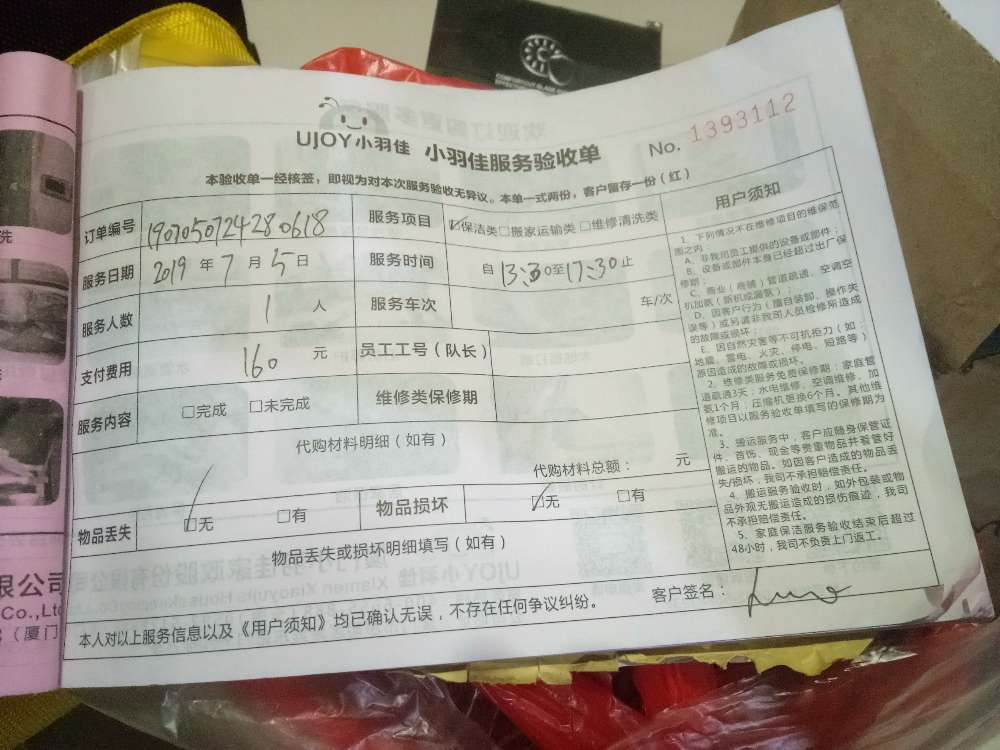 UJOY小羽佳 小羽佳服务验收单 No. 1393112
本验收单一经核签，即视为对本次服务验收无异议。本单一式两份，客户留存一份（红）
订单编号 服务项目 ☑保洁类□搬家运输类□维修清洗类
服务日期 2019 年 7 月 5 日 服务时间 自 13:30至17:30止
服务人数 1 人 服务车次 车/次
支付费用 160 元 员工工号（队长）
服务内容 □完成 □未完成 维修类保修期
代购材料明细（如有）
代购材料总额： 元
物品丢失 ☑无 □有 物品损坏 ☑无 □有
物品丢失或损坏明细填写（如有）
本人对以上服务信息以及《用户须知》均已确认无误，不存在任何争议纠纷。 客户签名：
用户须知
1、下列情况不在维修项目的维保范
围之内
A、非我司员工提供的设备或部件；
B、设备或部件本身已经超过出厂保
修期；
C、商业（店铺）管道疏通、空调空
机加氨（新机或漏氨）；
D、因客户行为（擅自装卸、操作失
误等）或另请非我司人员检修所造成
的故障或损坏；
E、因自然灾害等不可抗拒力（如：
地震、雷电、火灾、停电、短路等）
原因造成的故障或损坏。
2、维修类服务免费保修期：家庭管
道疏通3天；水电维修、空调维修、加
氨1个月；压缩机更换6个月。其他维
修项目以服务验收单填写的保修期为
准。
3、搬运服务中，客户应随身保管证
件、首饰、现金等贵重物品并看管好
搬运的物品。如因客户造成的物品丢
失/损坏，我司不承担赔偿责任。
4、搬运服务验收时，如外包装或物
品外观无搬运造成的损伤痕迹，我司
不承担赔偿责任。
5、家庭保洁服务验收结束后超过
48小时，我司不负责上门返工。
洗
限公司
Co.,Ltd
（厦门